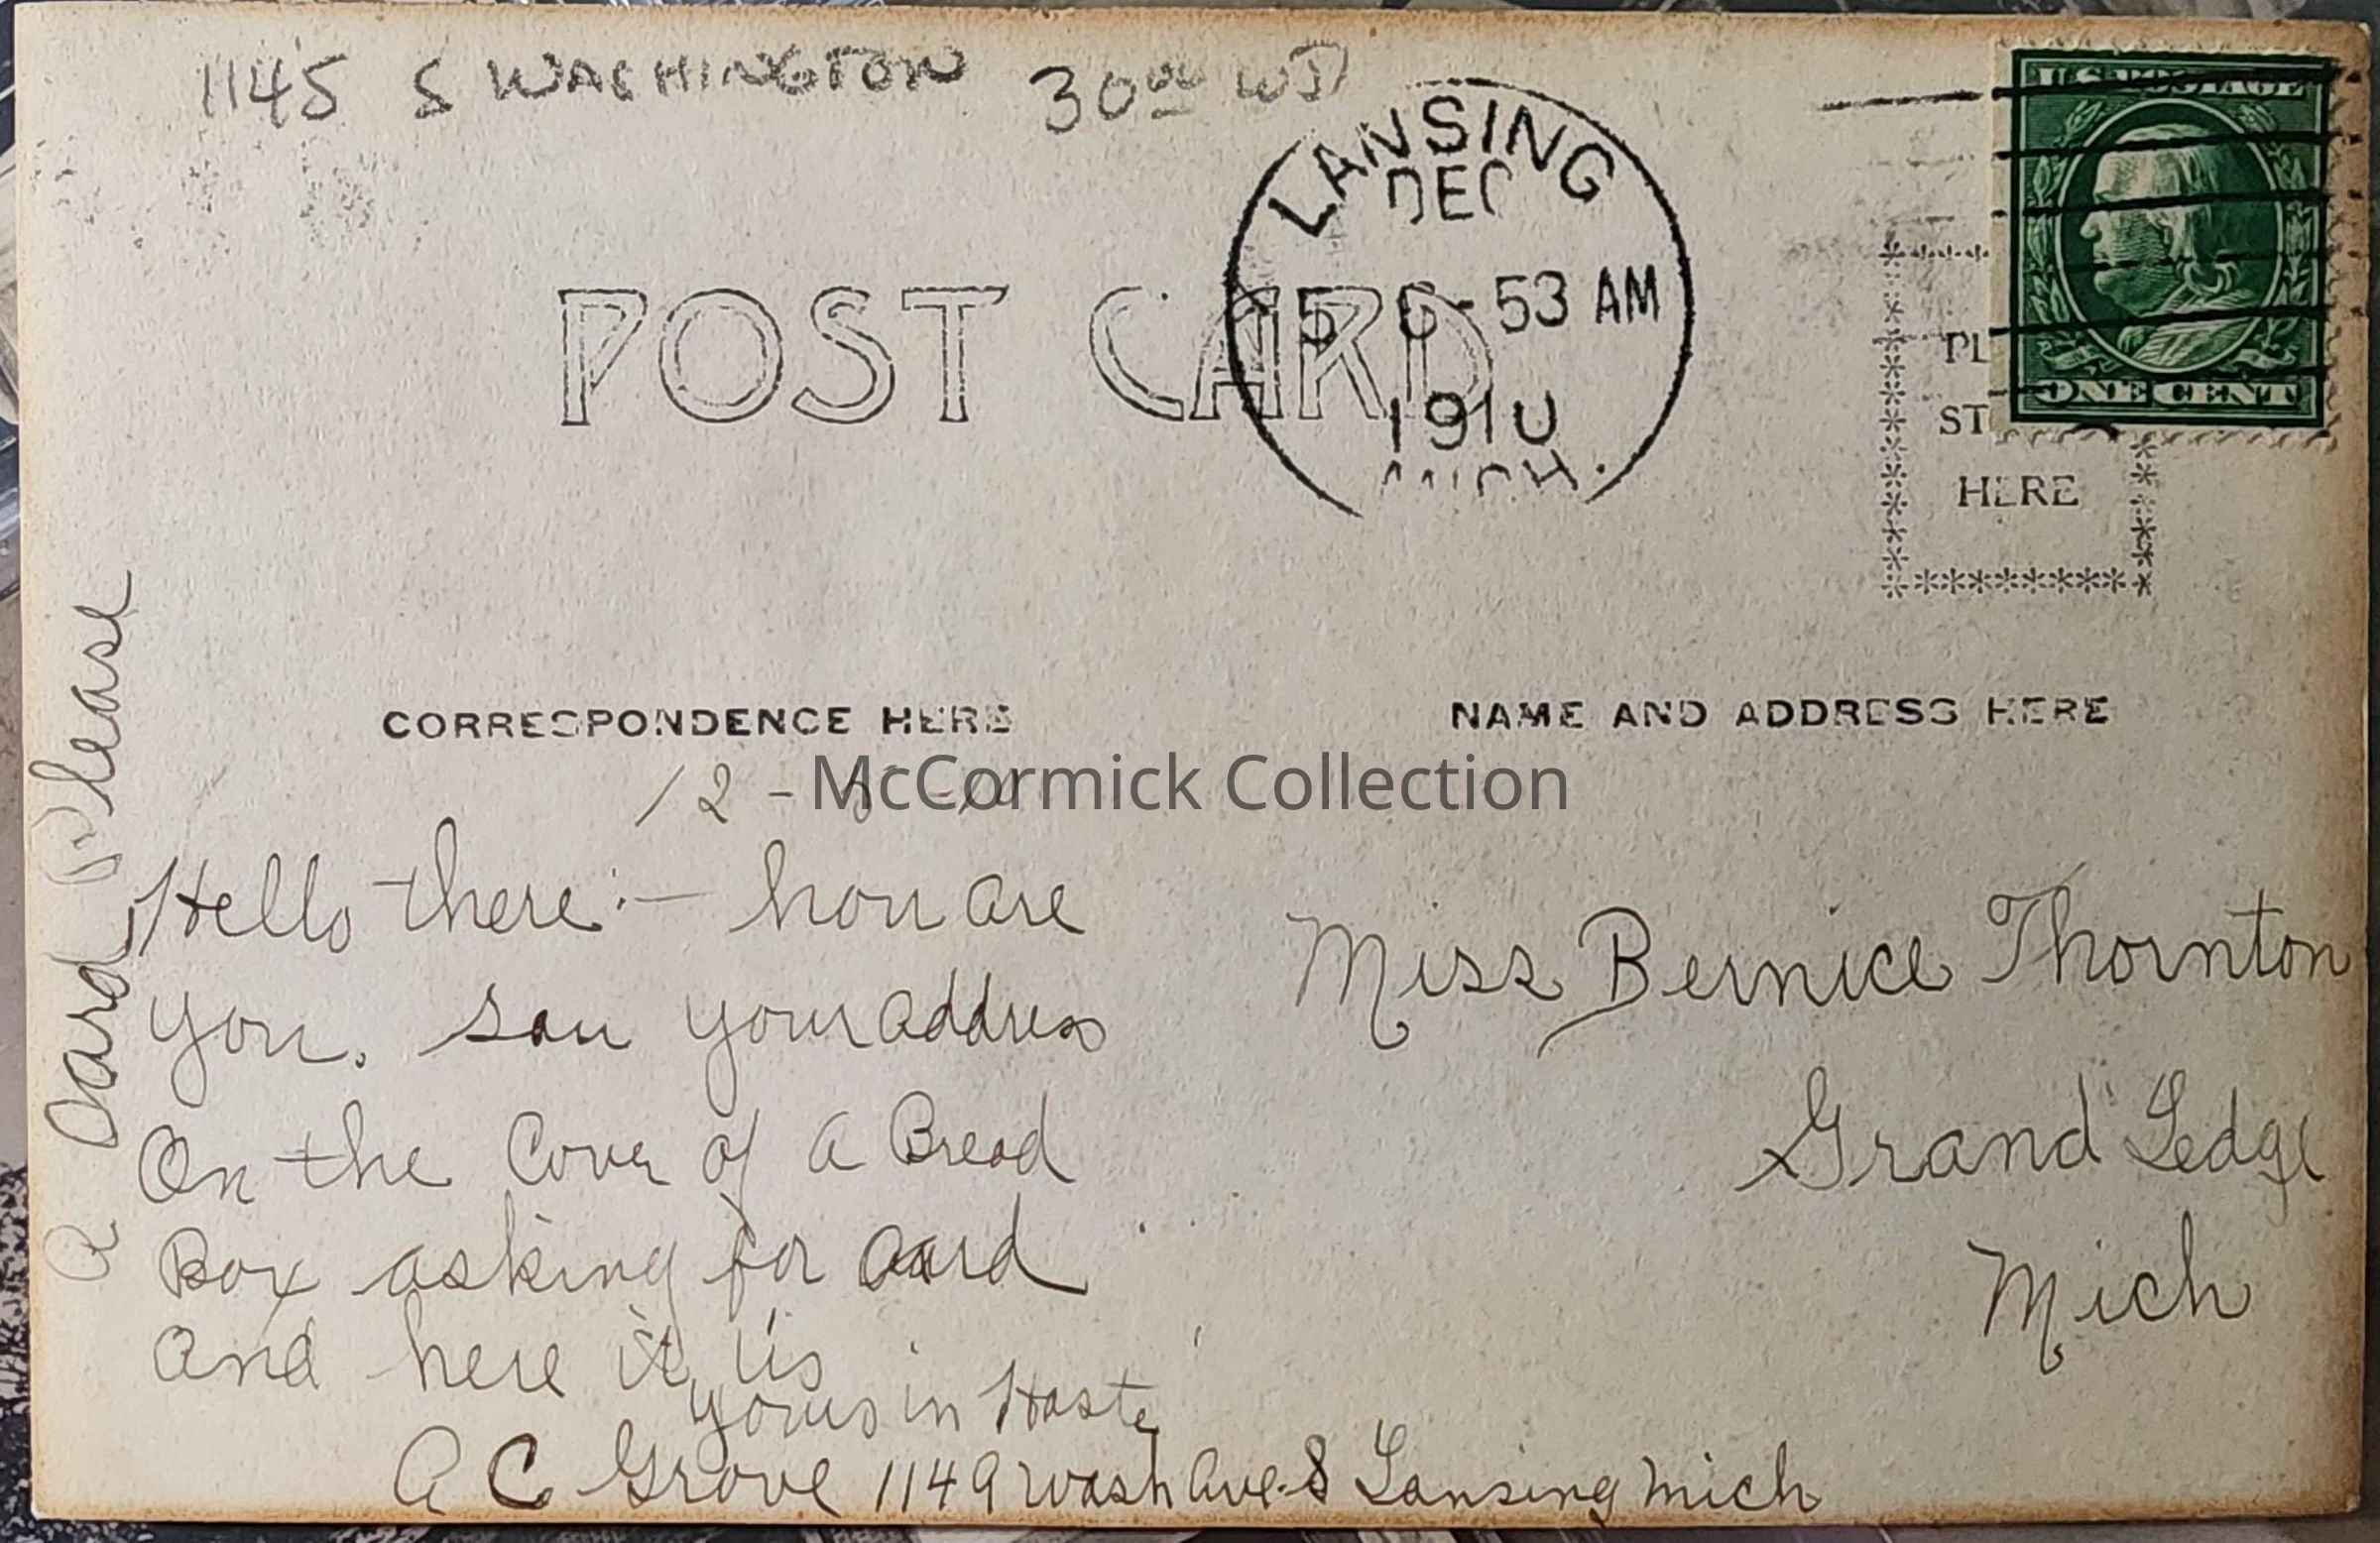 1145 S WASHINGTON 30.00
LANSING
DEC
5 6-53 AM
1910
MICH.
U.S. POSTAGE
ONE CENT
POST CARD
PL
ST
HERE
CORRESPONDENCE HERE
NAME AND ADDRESS HERE
McCormick Collection
12 -
Hello there:— how are
you. saw your address
On the Cover of a Bread
Box asking for Card
And here it is
yours in Haste
A C Grove 1149 Wash Ave. S Lansing Mich
A Card Please
Miss Bernice Thornton
Grand Ledge
Mich